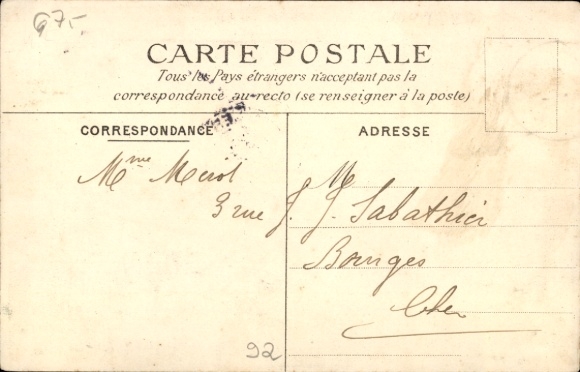 675-
CARTE POSTALE
Tous les Pays étrangers n'acceptant pas la
correspondance au recto (se renseigner à la poste)
CORRESPONDANCE
ADRESSE
Mme
M
3 rue J. J. Sabathier
Bourges
Cher
92